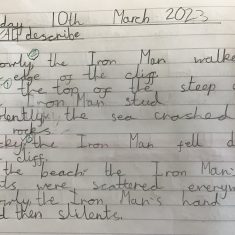 day 10th March 2023
describe
owly the Iron Man walke
edge of the cliff
① the top of the steep c
Iron Man stud
lently the sea crashed
rocks.
the Iron Man fell d
cliff.
the beach the Iron Man's
ts were scattered everyw
owly the Iron Man's hand
d then silents.